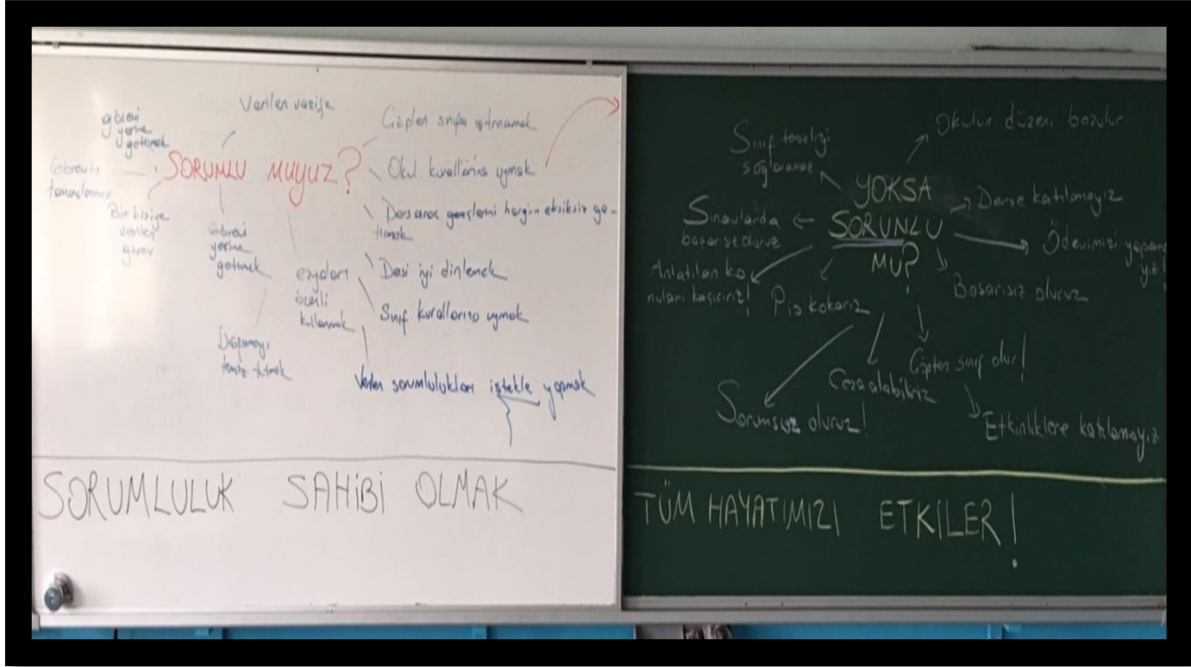 Verilen vazife
görevi
yerine
getirmek
SORUMLU MUYUZ?
Görevini
tamamlanması
Bir kişiye
verilen
görev
Görevi
yerine
getirmek
eşyaları
özenli
kullanmak
temiz tutmak
Çöpten sınıfa atmamak
Okul kurallarına uymak
Ders araç gereçlerini hergün eksiksiz ge-
tirmek
Desi iyi dinlemek
Sınıf kurallarına uymak
Verilen sorumlulukları istekle yapmak
SORUMLULUK SAHİBİ OLMAK
Okulun düzeni bozulur
Sınıf temizliği
sağlanamaz
YOKSA
SORUNLU
MU?
Derse katılamayız
Sınavlarda
başarısız oluruz
Ödevimizi yapama
yız!
Anlatılan ko
nuları kaçırırız!
Pis kokarız
Başarısız oluruz
Çöpten sınıf olur!
Ceza alabiliriz
Sorumsuz oluruz!
Etkinliklere katılamayız
TÜM HAYATIMIZI ETKİLER!